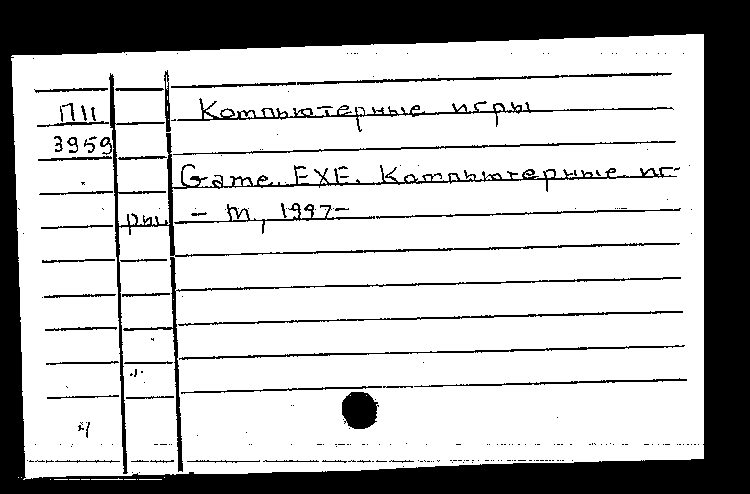 ПН
3959
Компьютерные игры
Game. EXE. Компьютерные иг-
ры. – М, 1997–